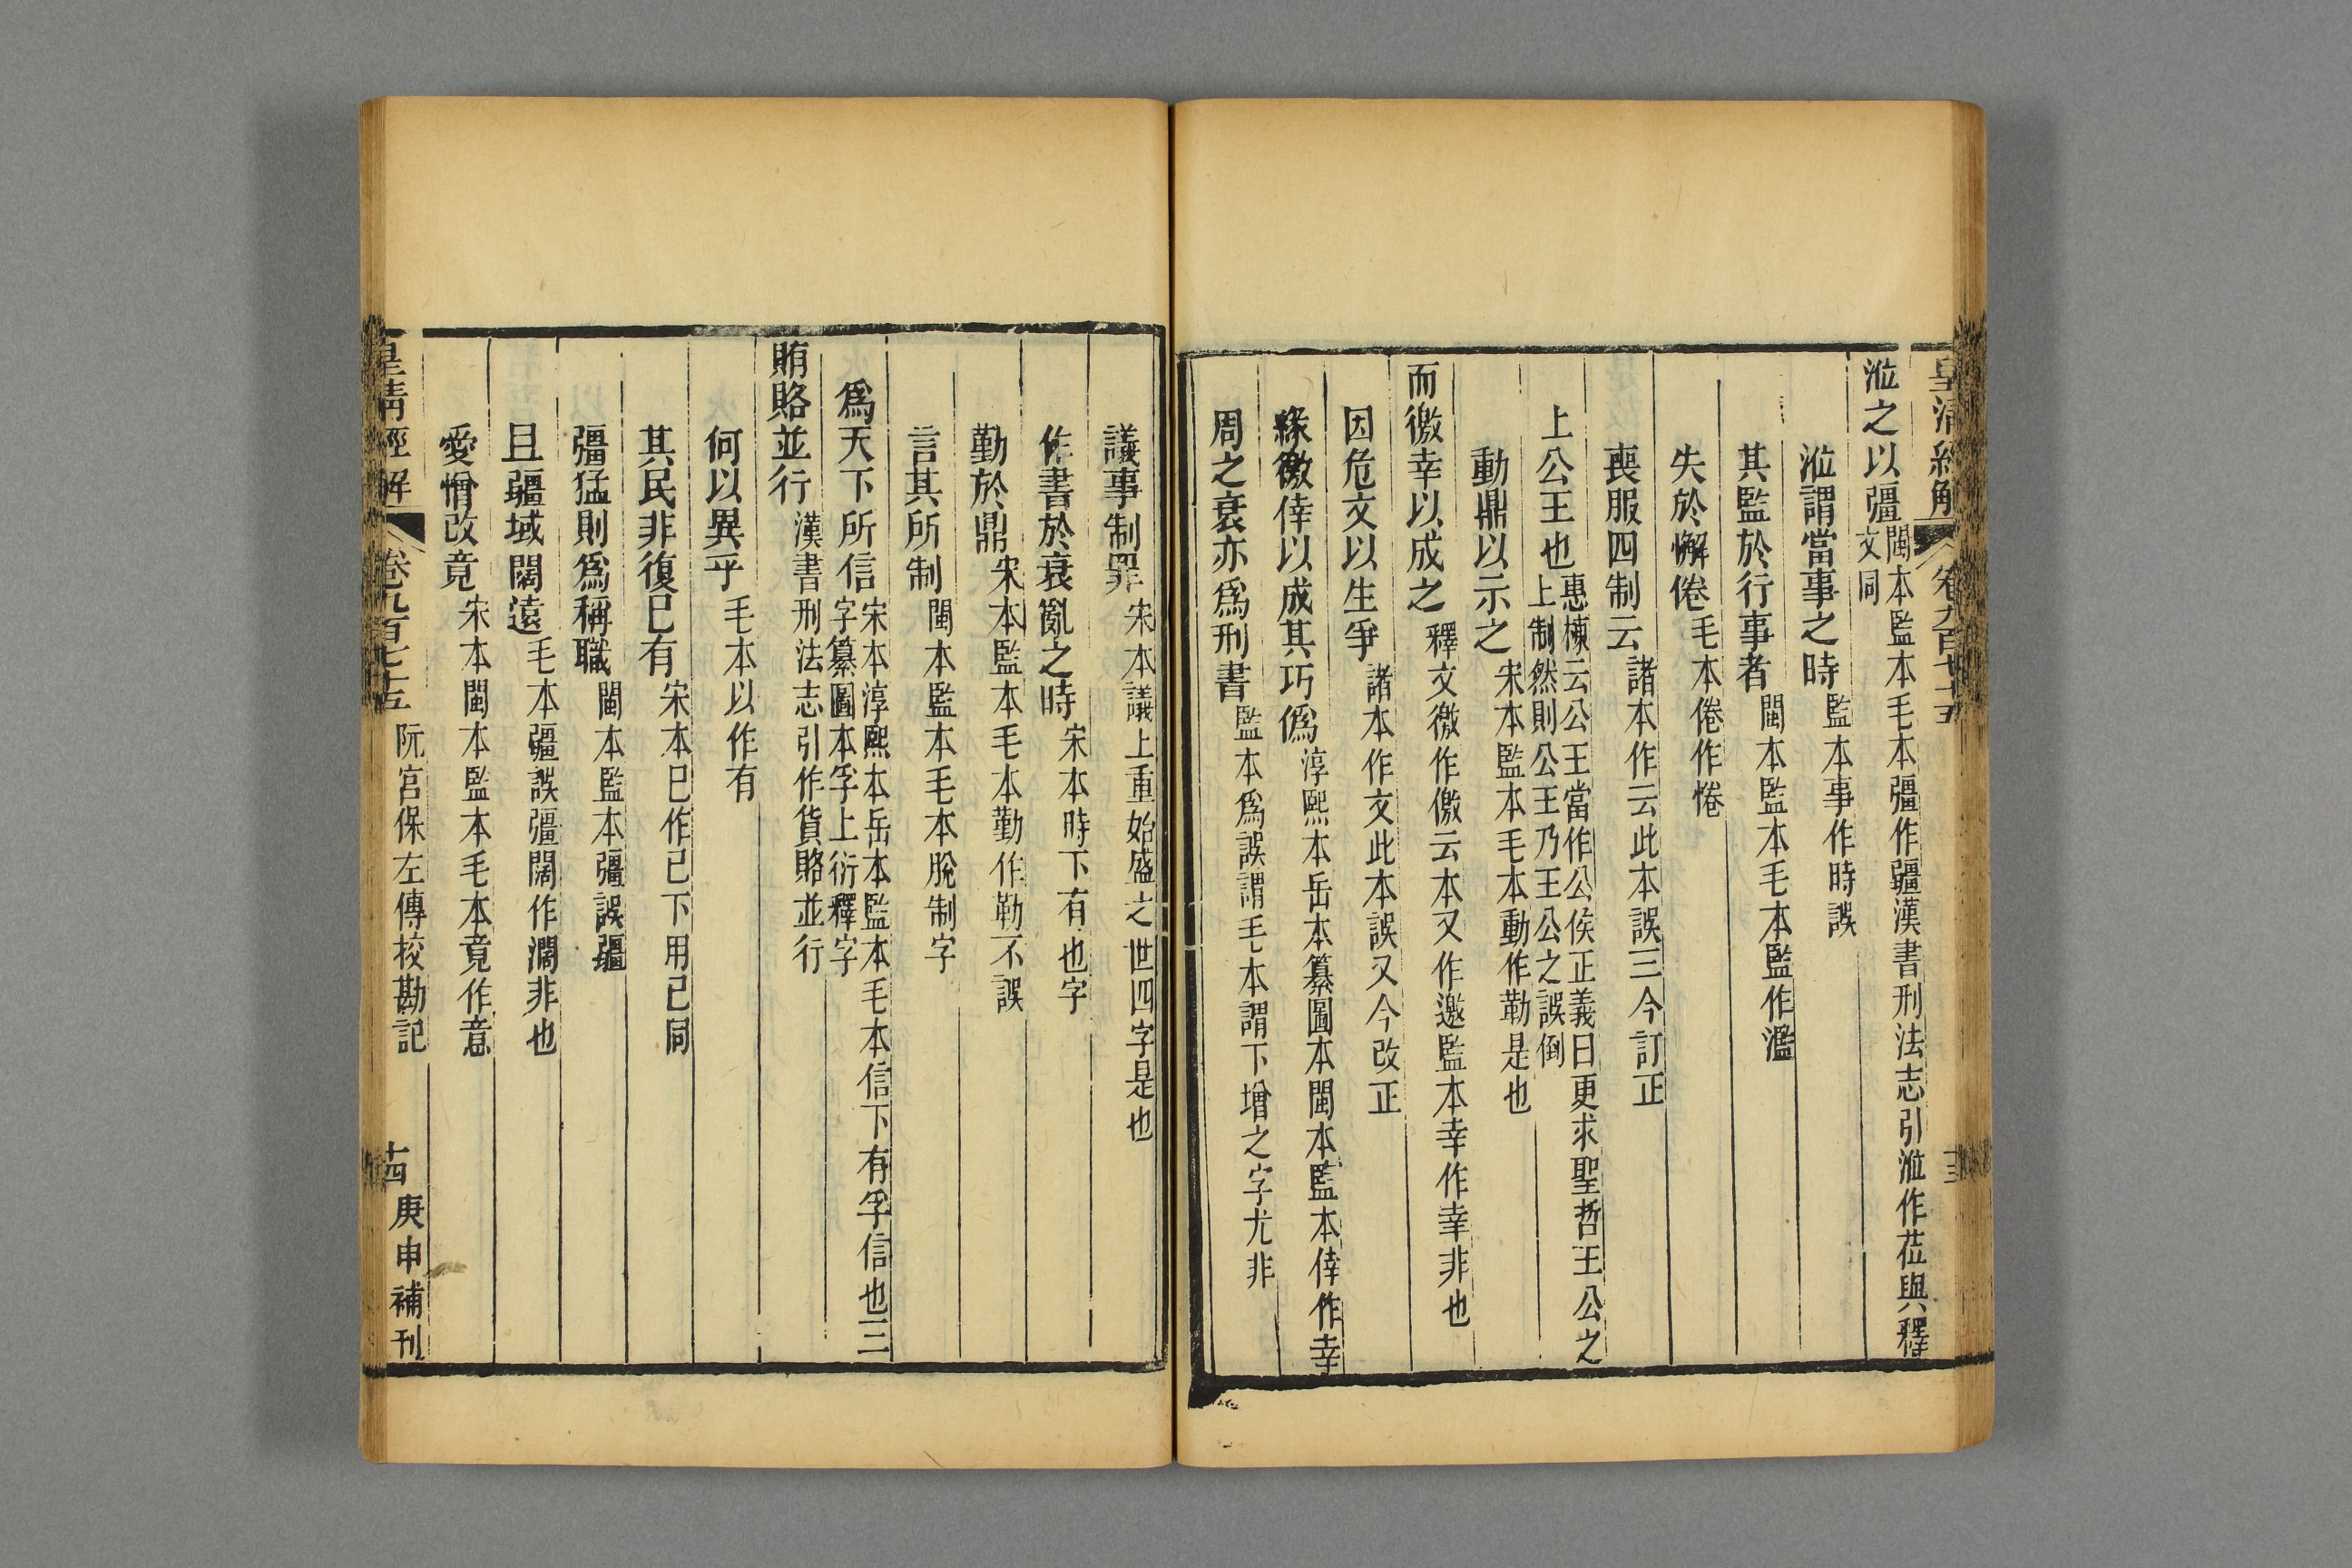 皇清經解 卷九百七十五 十三
涖之以彊閩本監本毛本彊作疆漢書刑法志引涖作莅與釋
文同
涖謂當事之時監本事作時誤
其監於行事者閩本監本毛本監作濫
失於懈倦毛本倦作惓
喪服四制云諸本作云此本誤三今訂正
上公王也惠棟云公王當作公侯正義曰更求聖哲王公之
上制然則公王乃王公之誤倒
動鼎以示之宋本監本毛本動作勒是也
而徼幸以成之釋文徼作儌云本又作邀監本幸作幸非也
因危文以生爭諸本作文此本誤又今改正
緣徼倖以成其巧僞淳熙本岳本纂圖本閩本監本倖作幸
周之衰亦爲刑書監本爲誤謂毛本謂下增之字尤非
議事制罪宋本議上重始盛之世四字是也
作書於衰亂之時宋本時下有也字
勤於鼎宋本監本毛本勤作勒不誤
言其所制閩本監本毛本脫制字
爲天下所信宋本淳熙本岳本監本毛本信下有孚信也三
字纂圖本孚上衍釋字
賄賂並行漢書刑法志引作貨賂並行
何以異乎毛本以作有
其民非復巳有宋本巳作己下用己同
彊猛則爲稱職閩本監本彊誤疆
且疆域闊遠毛本疆誤彊闊作濶非也
愛憎改竟宋本閩本監本毛本竟作意
皇清經解 卷九百七十五 阮宮保左傳校勘記 十四 庚申補刊